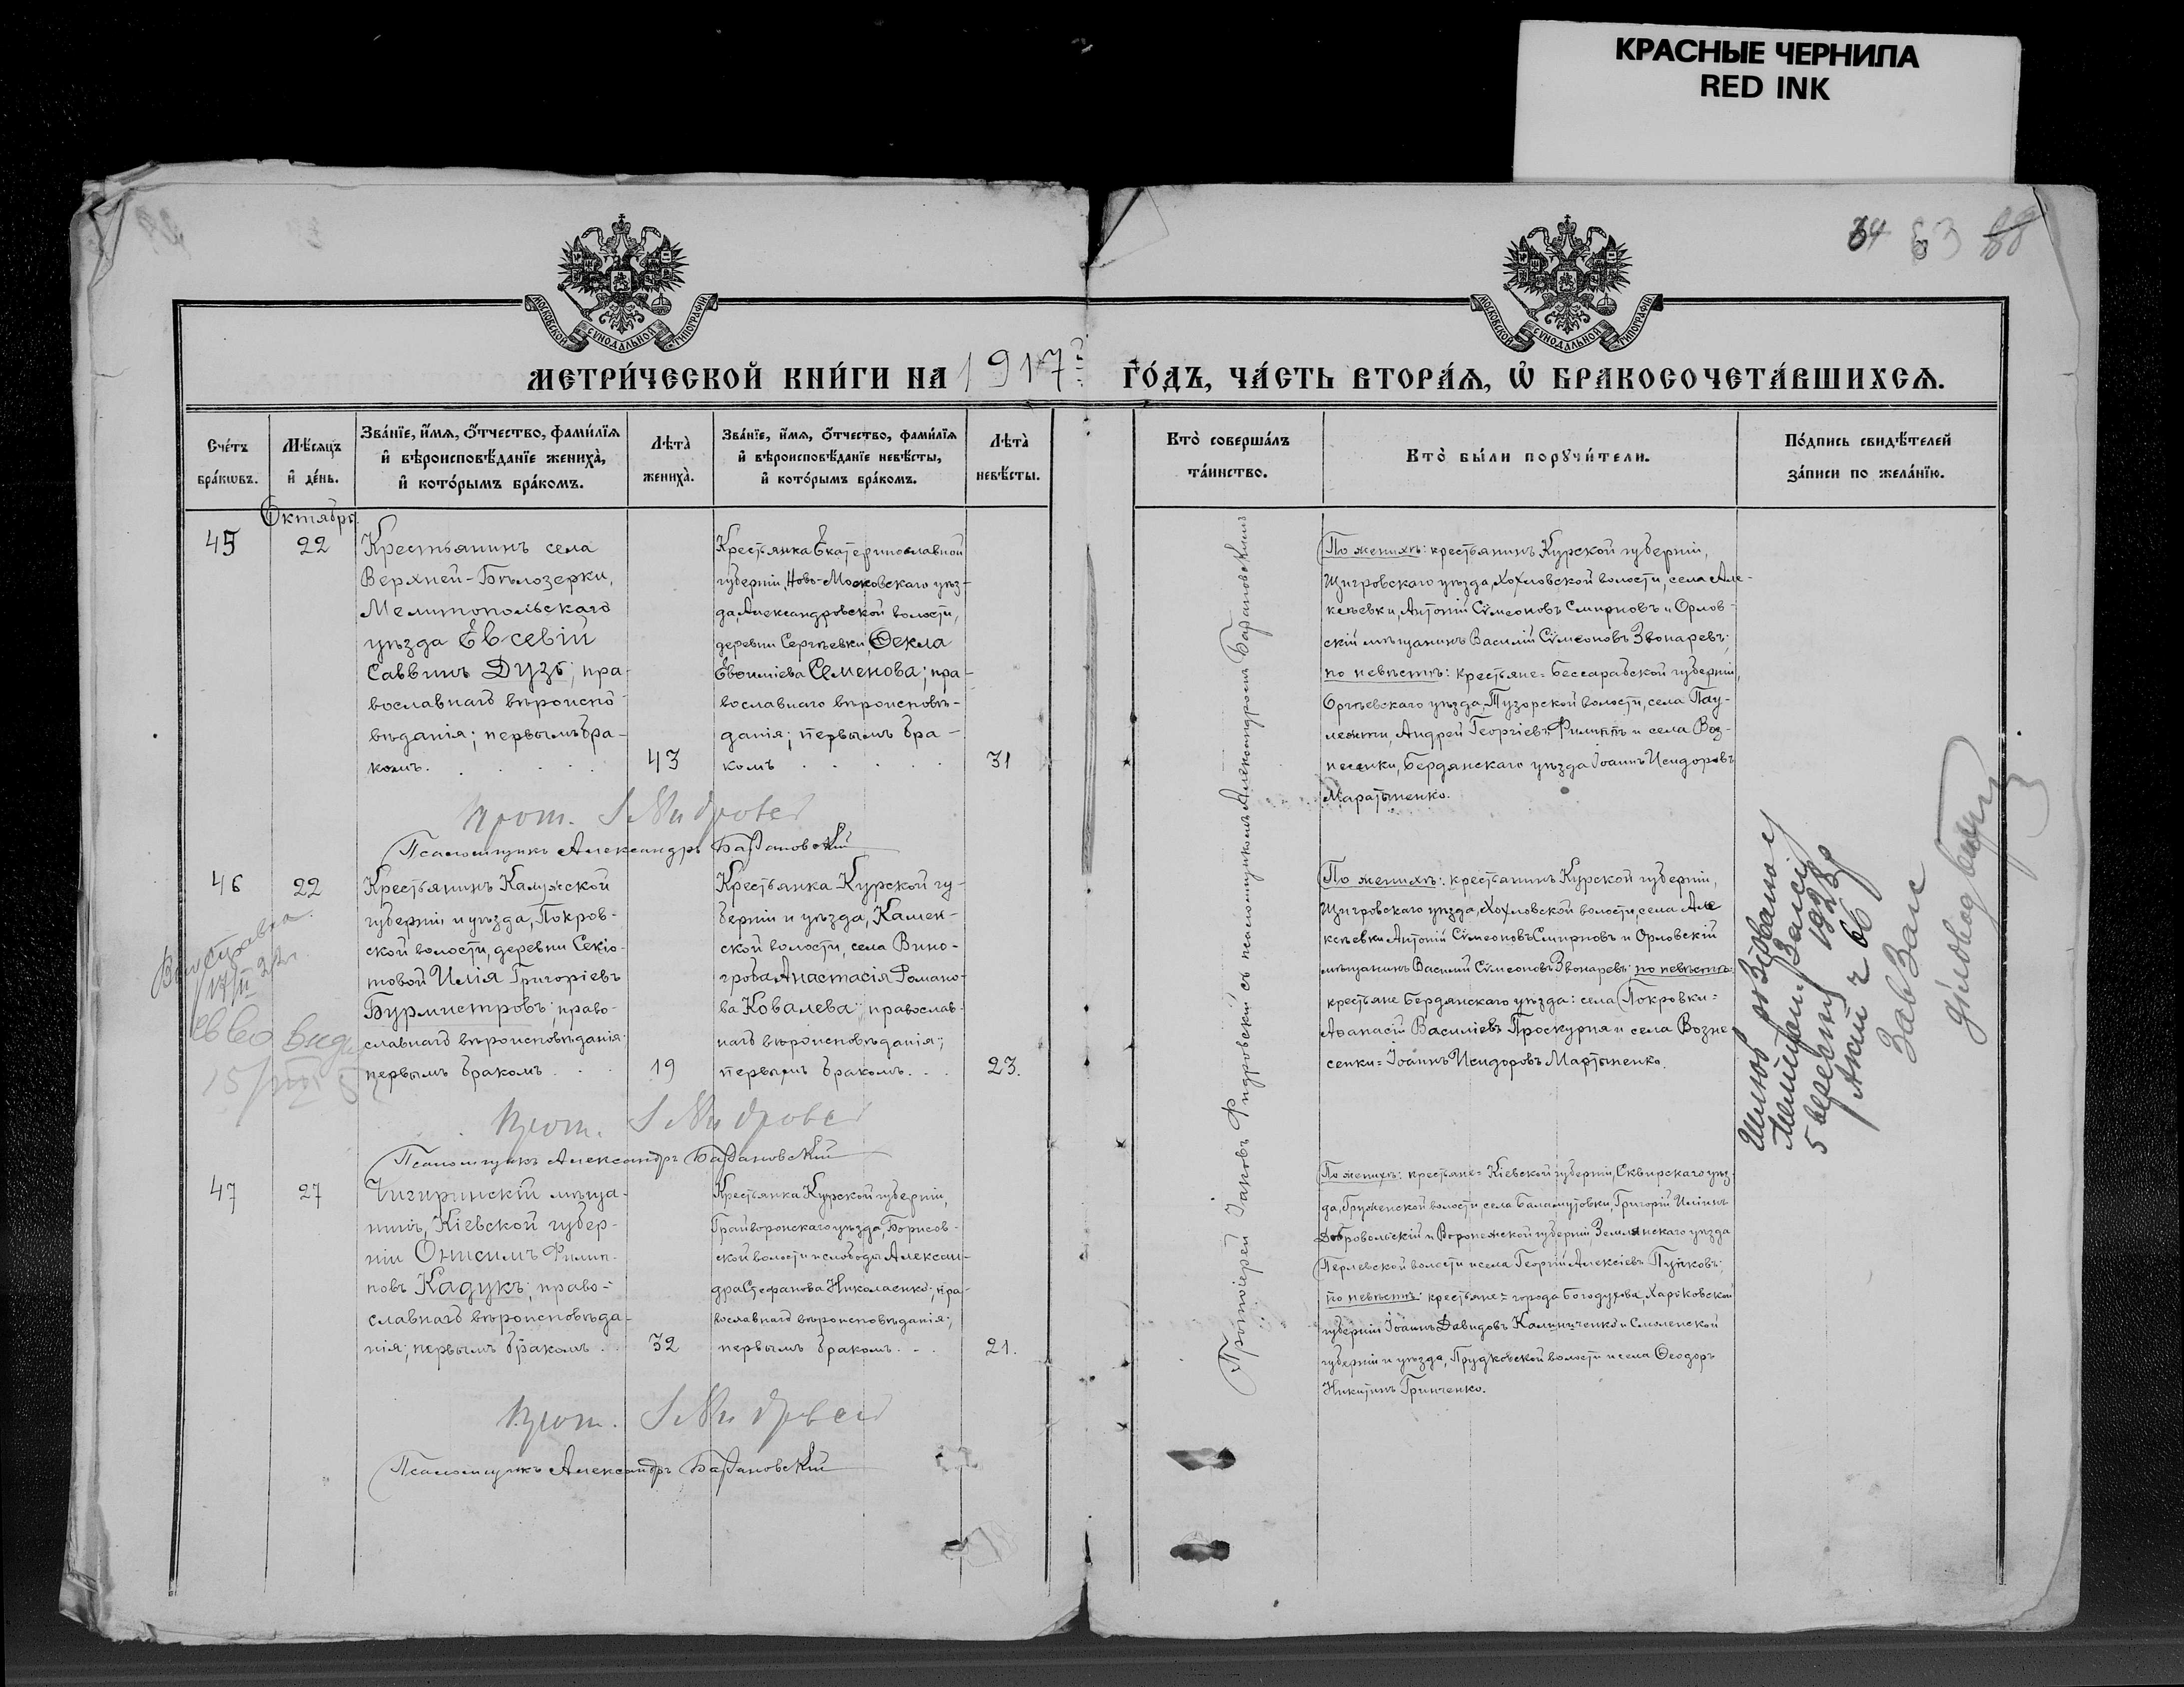 КРАСНЫЕ ЧЕРНИЛА
RED INK
34 83 88
МОСКОВСКОЙ СУНОДАЛЬНОЙ ТИПОГРАФІИ
МОСКОВСКОЙ СУНОДАЛЬНОЙ ТИПОГРАФІИ
МЕТРИ́ЧЕСКОЙ КНИ́ГИ НА 1917 ГО́ДЪ, ЧА́СТЬ ВТОРА́Я, Ѡ҆ БРАКОСОЧЕТА́ВШИХСЯ.
Сче́тъ
бра́кѡвъ.
Мѣ́сяцъ
и҆ де́нь.
Зва́нїе, и҆́мя, ѻ҆́тчество, фами́лїя
и҆ вѣроисповѣ́данїе жениха̀,
и҆ кото́рымъ бра́комъ.
Лѣта̀
жениха̀.
Зва́нїе, и҆́мя, ѻ҆́тчество, фами́лїя
и҆ вѣроисповѣ́данїе невѣ́сты,
и҆ кото́рымъ бра́комъ.
Лѣта̀
невѣ́сты.
Кто̀ соверша́лъ
та́инство.
Кто̀ бы́ли порꙋчи́тели.
По́дпись свидѣ́телей
за́писи по жела́нїю.
Октябрь.
45
22
Крестьянинъ села
Верхней-Бѣлозерки,
Мелитопольскаго
уѣзда Евсевій
Саввинъ Дузь; пра-
вославнаго вѣроиспо-
вѣданія; первымъ бра-
комъ.
43
Крестьянка Екатеринославной
губерніи, Ново-Московскаго уѣз-
да, Александровской волости,
деревни Сергѣевки, Ѳекла
Евѳиміева Семенова; пра-
вославнаго вѣроисповѣ-
данія; первымъ бра-
комъ
31
Прот.
Псаломщикъ Александръ Баздановскій
По женихѣ: крестьянинъ Курской губерніи,
Щигровскаго уѣзда, Хохловской волости, села Але-
ксѣевки, Антоній Сѵмеоновъ Смирновъ и Орлов-
скій мѣщанинъ Василій Сѵмеоновъ Звонаревъ;
по невѣстѣ: крестьяне= Бессарабской губерніи,
Оргѣевскаго уѣзда, Тузорской волости, села Пау-
лешти, Андрей Георгіевъ Филиппъ и села Воз-
несенки, Бердянскаго уѣзда Іоаннъ Исидоровъ
Мартыненко.
46
22
Крестьянинъ Калужской
губерніи и уѣзда, Покров-
ской волости, деревни Секіо-
товой Илія Григоріевъ
Бурмистровъ; право-
славнаго вѣроисповѣданія;
первымъ бракомъ
19
Крестьянка Курской гу-
берніи и уѣзда, Камен-
ской волости, села Вино-
гроба Анастасія Романо-
ва Ковалева; православ-
наго вѣроисповѣданія;
первымъ бракомъ.
23.
Прот.
Псаломщикъ Александръ Баздановскій
По женихѣ: крестьянинъ Курской губерніи,
Щигровскаго уѣзда, Хохловской волости, села Але
ксѣевки Антоній Сѵмеоновъ Смирновъ и Орловскій
мѣщанинъ Василій Сѵмеоновъ Звонаревъ; по невѣстѣ:
крестьяне Бердянскаго уѣзда: села Покровки=
Аѳанасій Василіевъ Проскурня и села Возне
сенки= Іоаннъ Исидоровъ Мартыненко.
47
27
Чигиринскій мѣща-
нинъ, Кіевской губер-
ніи Онисимъ Филип-
повъ Кадукъ; право-
славнаго вѣроисповѣда-
нія; первымъ бракомъ
32
Крестьянка Курской губерніи,
Грайворонскаго уѣзда, Борисов-
ской волости и слободы Алексан-
дра Стефанова Николаенко; пра-
вославнаго вѣроисповѣданія;
первымъ бракомъ.
21.
Прот.
Псаломщикъ Александръ Баздановскій
По женихѣ: крестьяне= Кіевской губерніи, Сквирскаго уѣз-
да, Груженской волости, села Баламутовки, Григорій Иліинъ
Добровольскій и Воронежской губерніи, Землянскаго уѣзда
Перлевской волости и села Георгій Алексіевъ Пупковъ;
по невѣстѣ: крестьяне= города Богодухова, Харьковской
губерніи Іоаннъ Давидовъ Калиниченко и Смоленской
губерніи и уѣзда, Прудковской волости и села Ѳеодоръ
Никитинъ Гринченко.
Протоіерей Іаковъ съ псаломщикомъ Александромъ Баздановскимъ
Шлюб розвiдовано у
5 вересня 1923 р
Акт ч 66
Зав Загс
Дiловод